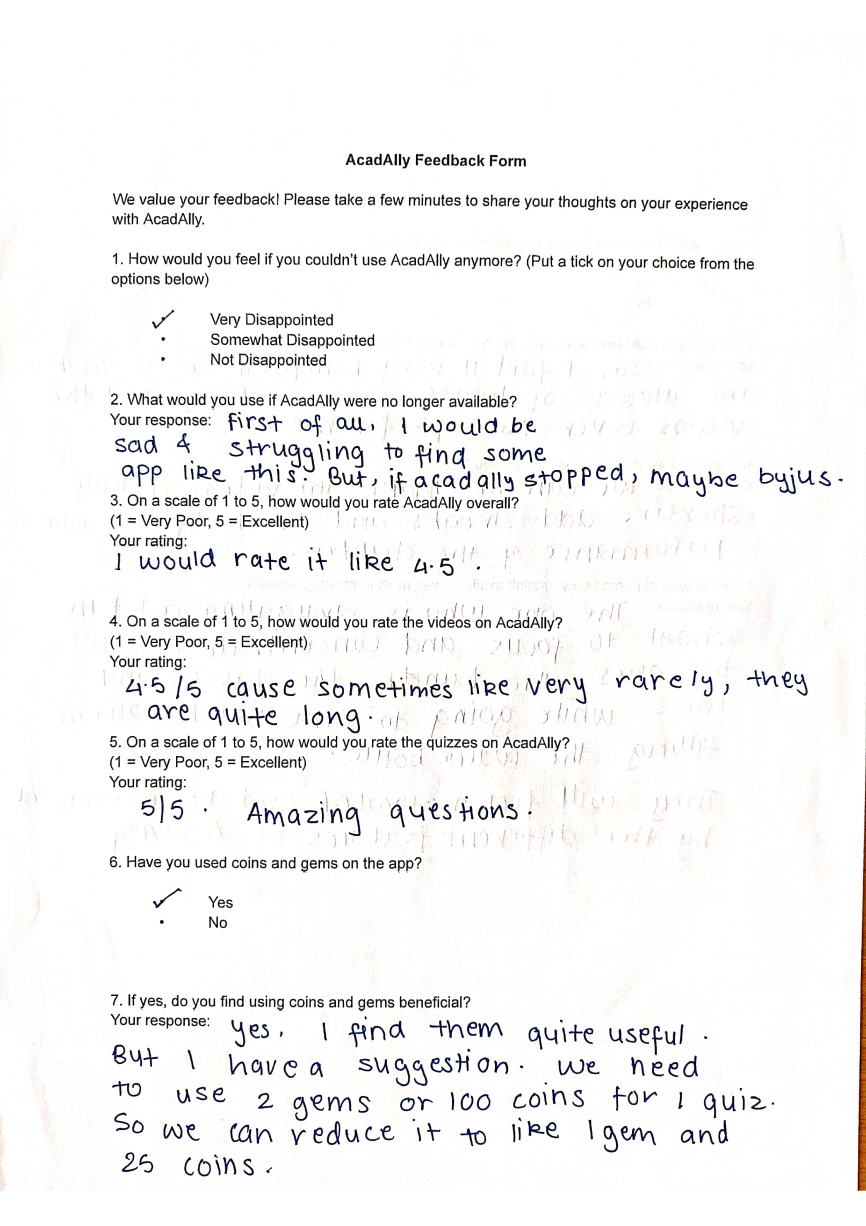 AcadAlly Feedback Form
We value your feedback! Please take a few minutes to share your thoughts on your experience
with AcadAlly.
1. How would you feel if you couldn't use AcadAlly anymore? (Put a tick on your choice from the
options below)
✓ Very Disappointed
• Somewhat Disappointed
• Not Disappointed
2. What would you use if AcadAlly were no longer available?
Your response: first of all, I would be
sad & struggling to find some
app like this. But, if acadally stopped, maybe byjus.
3. On a scale of 1 to 5, how would you rate AcadAlly overall?
(1 = Very Poor, 5 = Excellent)
Your rating:
I would rate it like 4.5.
4. On a scale of 1 to 5, how would you rate the videos on AcadAlly?
(1 = Very Poor, 5 = Excellent)
Your rating:
4.5/5 cause sometimes like very rarely, they
are quite long.
5. On a scale of 1 to 5, how would you rate the quizzes on AcadAlly?
(1 = Very Poor, 5 = Excellent)
Your rating:
5/5. Amazing questions.
6. Have you used coins and gems on the app?
✓ Yes
• No
7. If yes, do you find using coins and gems beneficial?
Your response: yes, I find them quite useful.
But I have a suggestion. we need
to use 2 gems or 100 coins for 1 quiz.
So we can reduce it to like 1 gem and
25 coins.